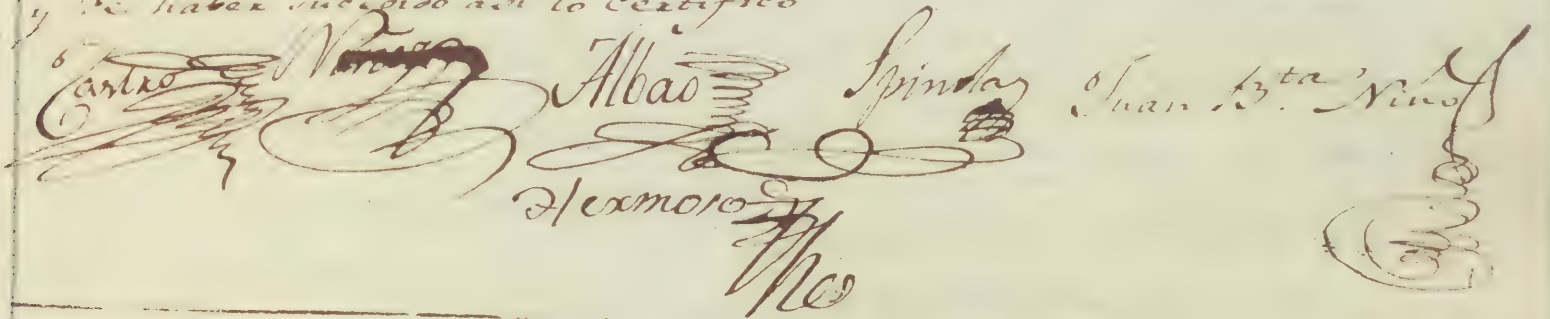 y de haber sucedido asi lo certifico
Castro Albao Spinola Juan B.ta Nino
Hermoso